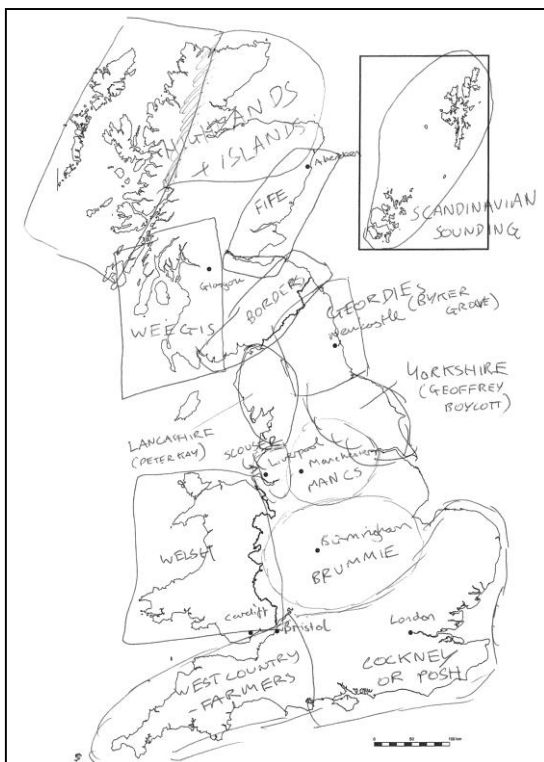 HIGHLANDS
+ ISLANDS
Aberdeen
FIFE
SCANDINAVIAN
SOUNDING
Glasgow
WEEGIS
BORDERS
GEORDIES
(BYKER
GROVE)
Newcastle
YORKSHIRE
(GEOFFREY
BOYCOTT)
LANCASHIRE
(PETER KAY)
SCOUSE
Liverpool
Manchester
MANCS
WELSH
Birmingham
BRUMMIE
Cardiff
Bristol
London
COCKNEY
OR POSH
WEST COUNTRY
- FARMERS
0 50 100 km